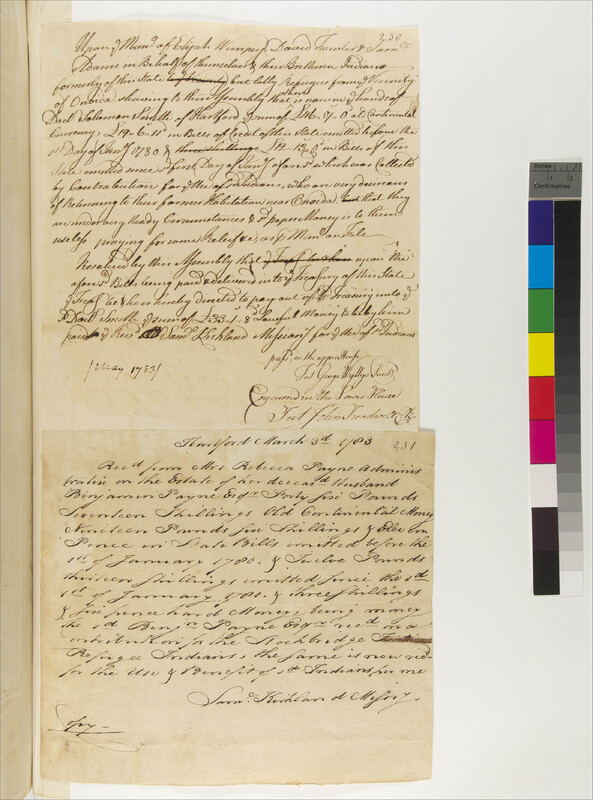 230
Upon ye Meml of Elijah Wimpey David Fowler & Saml
Adams in Behalf of themselves & their Brethren Indians
formerly of this State but lately Refugees from ye Vicinity
of Onoida shewing to this Assembly that there is now in ye hands of
Doctr Solomon Smith of Hartford ye sum of £46. 17. 0 old Continental
Currency £19. 6. 11d in Bills of Credit of this State emitted before the
1st Day of Jany 1780 & £12. 13. 0 in Bills of this
State emitted since ye first Day of Jany aforesd which was Collected
by Contribution for ye Use of sd Indians, who are very desirous
of Returning to their former Habitation near Onoida. that they
are under very Needy Circumstances & sd paper Money is to them
useless praying for some Relief &c, as pr Meml on File
Resolved by this Assembly that upon the
aforesd Bills being paid & delivered into ye Treasury of this State
ye Treasr be & he is hereby directed to pay out of sd Treasury unto ye
sd Doctr Smith ye sum of £33. Lawful Money to be by him
paid to ye Revd Saml Kirkland Missory for ye Use of sd Indians
passd in the upper House
Test George Wyllys Secrety
Concurred in the Lower House
Test John Treadwell Clk
[May 1783]
Hartford March 3d 1783
231
Recd from Mrs Rebecca Payne Adminis
tratrix on the Estate of her deceasd Husband
Benjamin Payne Esqr Forty six Pounds
Seventeen Shillings Old Continental Money
Nineteen Pounds six Shillings & Eleven
Pence in State Bills emitted before the
1st of January 1780. & Twelve Pounds
thirteen Shillings emitted since the sd
1st of January 1780. & three shillings
& six pence hard Money, being money
the sd Benjn Payne Esqr recd in a
contribution for the Stockbridge
Refugee Indians & the same is now recd
for the Use & Benefit of sd Indians per me
Saml Kirkland Missiy
Copy